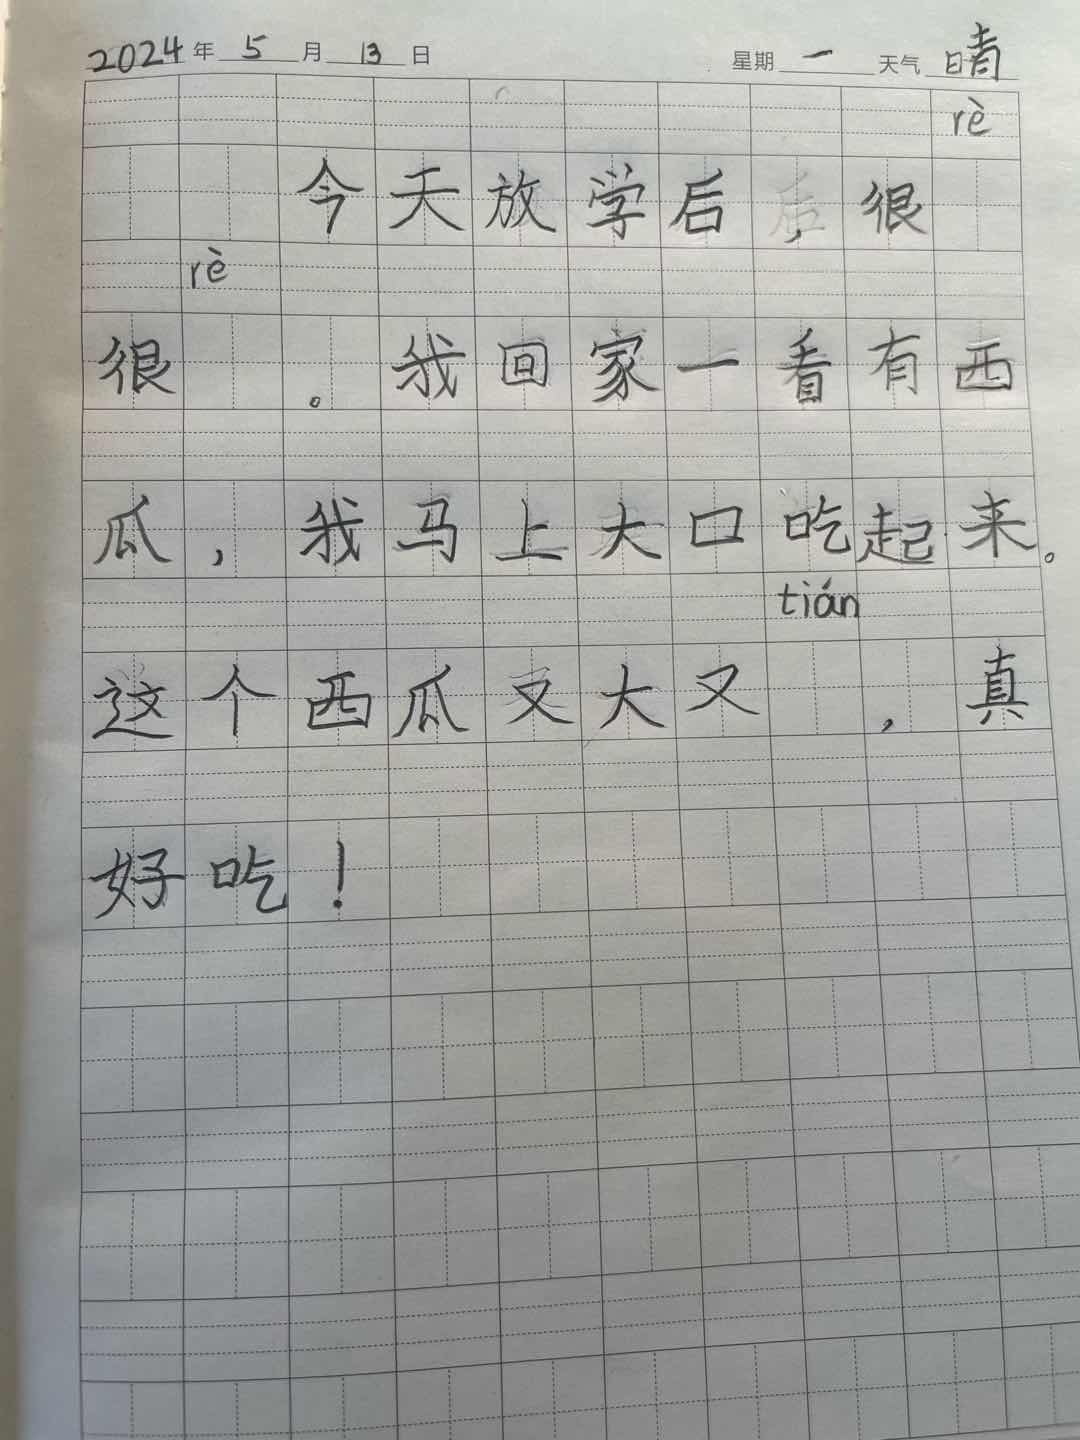 2024年 5 月 13 日 星期 一 天气 晴
rè
今天放学后，很
rè
很 。我回家一看有西
瓜，我马上大口吃起来。
tián
这个西瓜又大又 ，真
好吃！